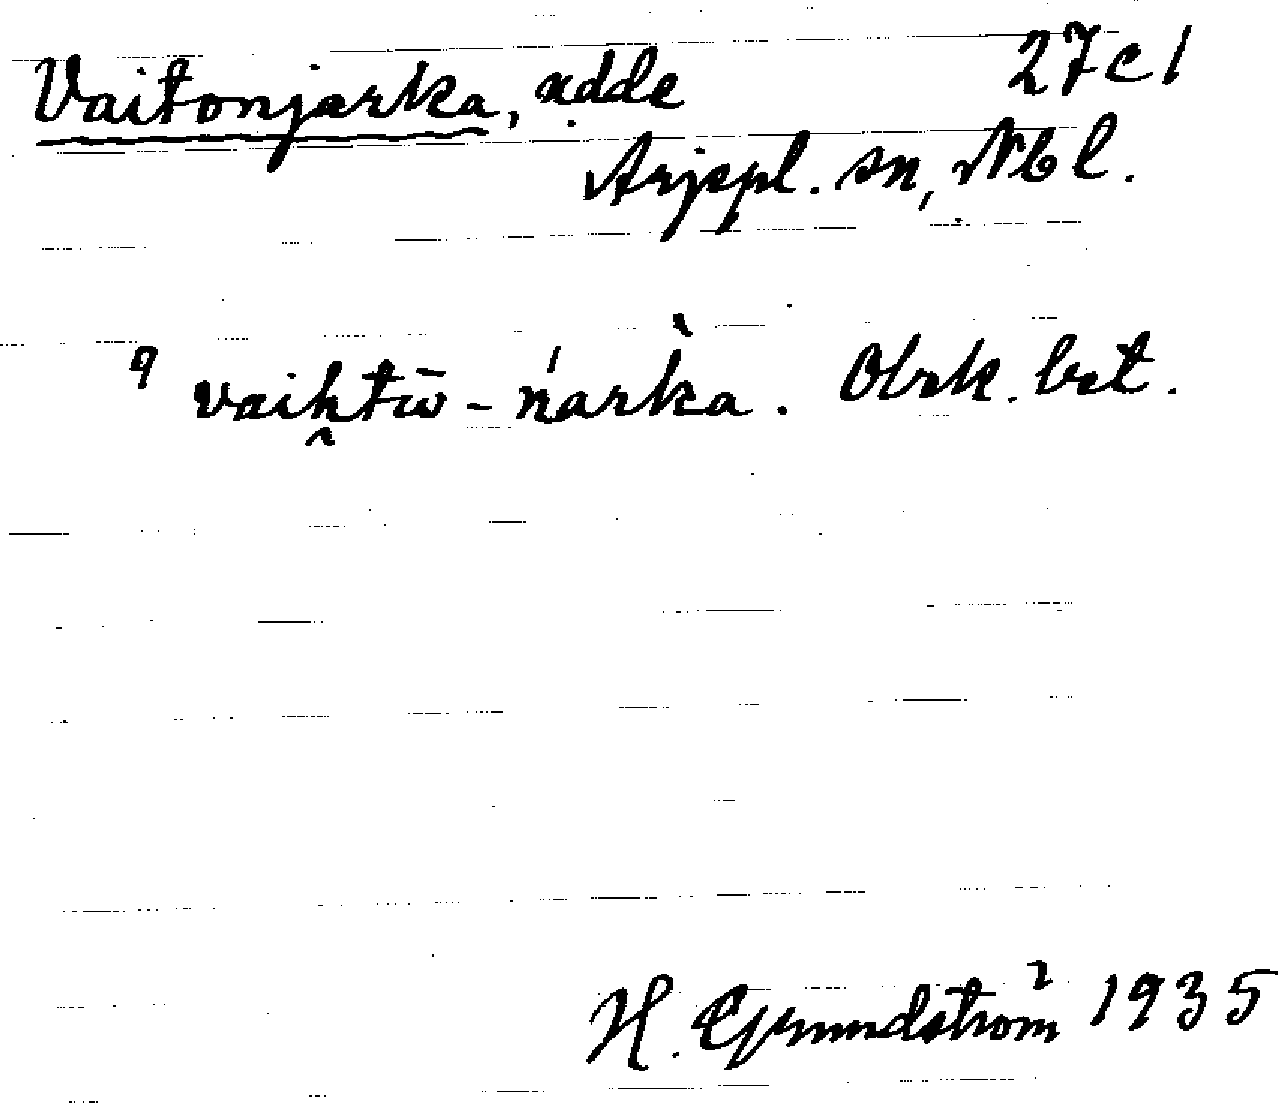 Vaitonjarka, udde 27c1
Arjepl. sn, Nbl.
vaiḫtū-ńarka. Obrk. bet.
H. Grundström 1935